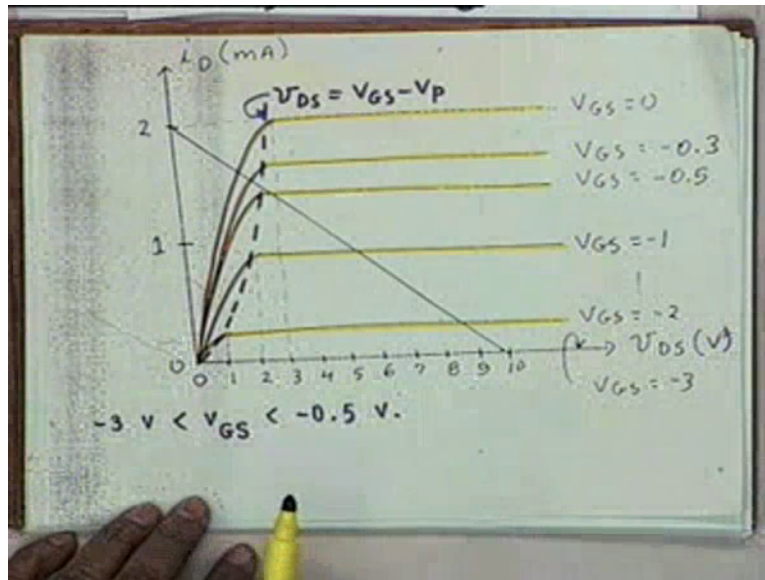 i_D (mA)
v_DS = V_GS - V_P
V_GS = 0
2
V_GS = -0.3
V_GS = -0.5
1
V_GS = -1
V_GS = -2
0
0 1 2 3 4 5 6 7 8 9 10
v_DS (V)
V_GS = -3
-3 V < V_GS < -0.5 V.